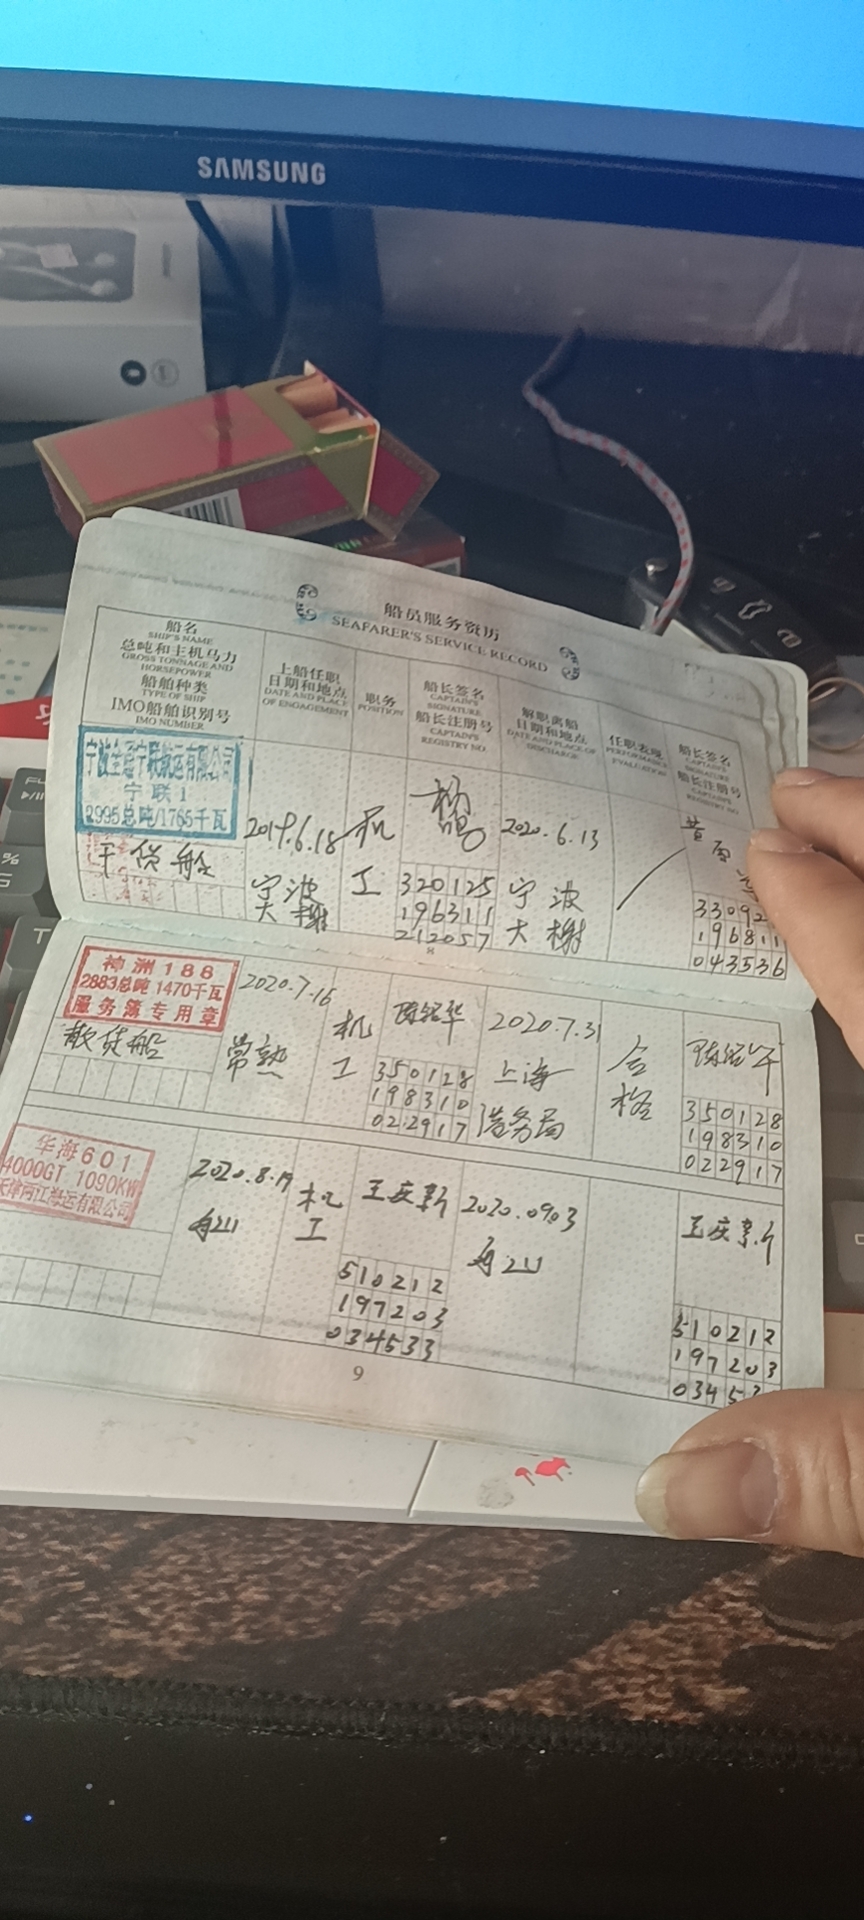 SAMSUNG
船员服务资历
SEAFARER'S SERVICE RECORD
船名
SHIP'S NAME
总吨和主机马力
GROSS TONNAGE AND
HORSEPOWER
船舶种类
TYPE OF SHIP
IMO船舶识别号
IMO NUMBER
上船任职
日期和地点
DATE AND PLACE
OF ENGAGEMENT
职务
POSITION
船长签名
CAPTAIN'S
SIGNATURE
船长注册号
CAPTAIN'S
REGISTRY NO.
解职离船
日期和地点
DATE AND PLACE OF
DISCHARGE
任职表现
PERFORMANCE
EVALUATION
船长签名
CAPTAIN'S
SIGNATURE
船长注册号
CAPTAIN'S
REGISTRY NO.
宁波全通宁联航运有限公司
宁联1
2995总吨/1765千瓦
干货船
2019.6.18
宁波
大榭
机
工
320125
196311
212057
2020.6.13
宁波
大榭
黄
33092
196811
043536
8
神洲188
2883总吨 1470千瓦
服务簿专用章
散货船
2020.7.16
常熟
机
工
350128
198310
022917
2020.7.31
上海
港务局
合
格
350128
198310
022917
华海601
4000GT 1090KW
天津河江海运有限公司
2020.8.19
舟山
机
工
王庆新
510212
197203
034533
2020.0903
舟山
王庆新
510212
197203
0345
9